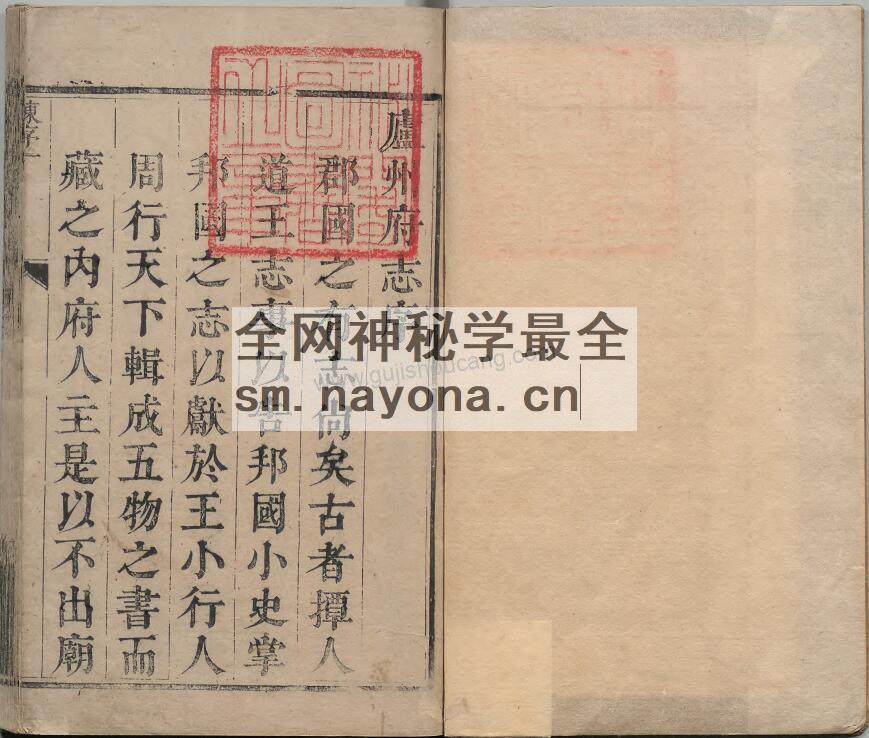 廬州府志序
郡國之有志尚矣古者撢人
道王志事以告邦國小史掌
邦國之志以獻於王小行人
周行天下輯成五物之書而
藏之內府人主是以不出廟
陳序一
全网神秘学最全
sm.nayona.cn
www.gujishoucang.com